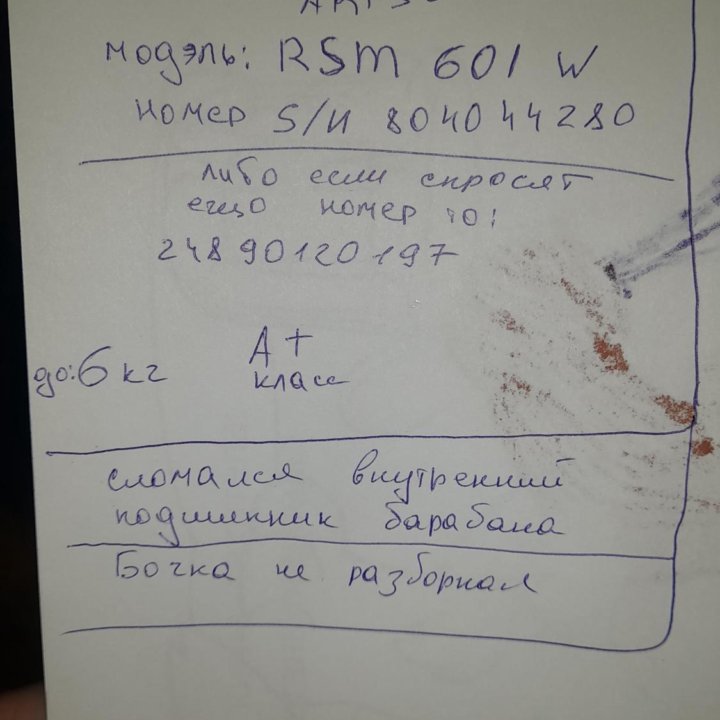 модэль: RSM 601 W
номер S/N 804044280
либо если спросят
ещо номер то:
24890120197
до: 6 кг
A+
класс
сломался внутренний
подшипник барабана
Бочка не разборная